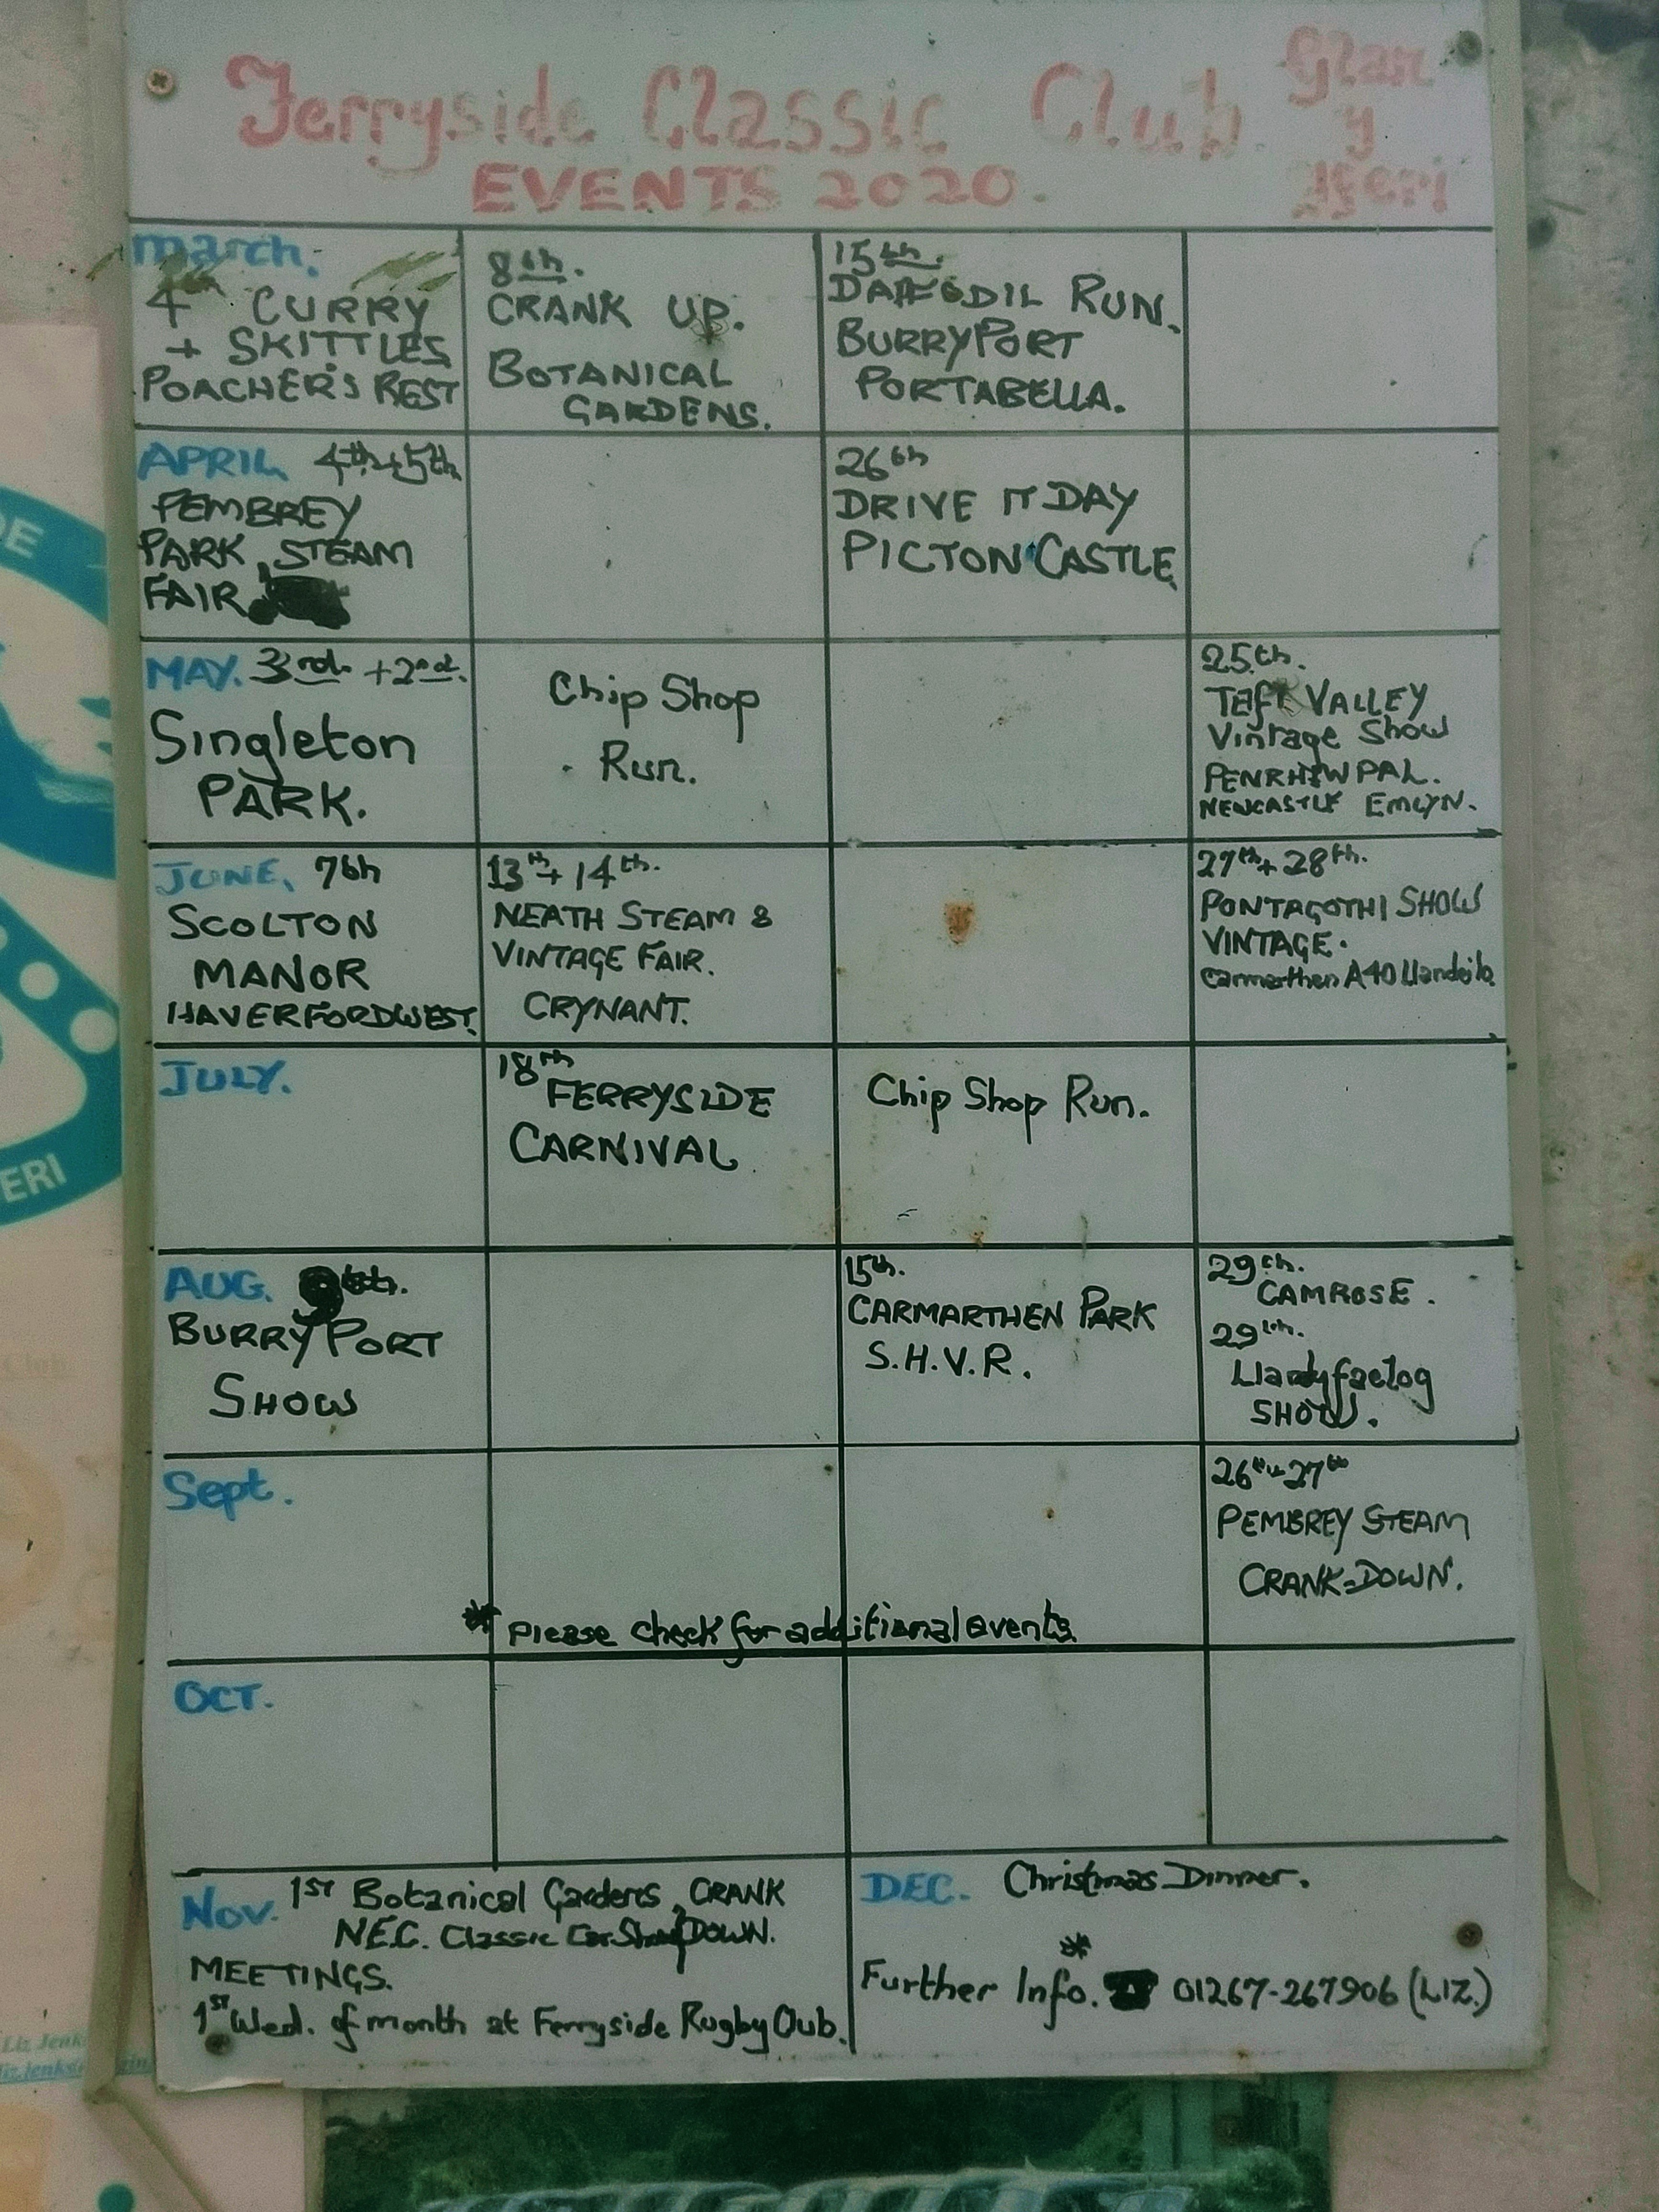 Ferryside Classic Club Glan
y
fferi
EVENTS 2020.
March.
4 CURRY
+ SKITTLES
POACHER'S REST
8th.
CRANK UP.
BOTANICAL
GARDENS.
15th.
DAFFODIL RUN.
BURRYPORT
PORTABELLA.
APRIL 4th+5th
PEMBREY
PARK STEAM
FAIR
26th
DRIVE IT DAY
PICTON CASTLE
MAY. 3rd. +2nd.
Singleton
PARK.
Chip Shop
Run.
25th.
VALLEY
Vintage Show
PENRHIWPAL.
NEWCASTLE EMLYN.
JUNE. 7th
SCOLTON
MANOR
HAVERFORDWEST.
13th + 14th.
NEATH STEAM &
VINTAGE FAIR.
CRYNANT.
27th + 28th.
PONTAGOTHI SHOW
VINTAGE.
Carmarthen A40 Llandeilo
JULY.
18th
FERRYSIDE
CARNIVAL
Chip Shop Run.
AUG. 9th.
BURRY PORT
SHOW
15th.
CARMARTHEN PARK
S.H.V.R.
29th.
CAMROSE.
29th.
Llandyfaelog
SHOW.
Sept.
26th - 27th
PEMBREY STEAM
CRANK-DOWN.
* Please check for additional events.
OCT.
NOV. 1ST Botanical Gardens, CRANK
N.E.C. Classic Car Show DOWN.
MEETINGS.
1ST Wed. of month at Ferryside Rugby Club.
DEC. Christmas Dinner.
*
Further Info. ☎ 01267-267906 (LIZ.)
DE
ERI
Club
Liz Jenk